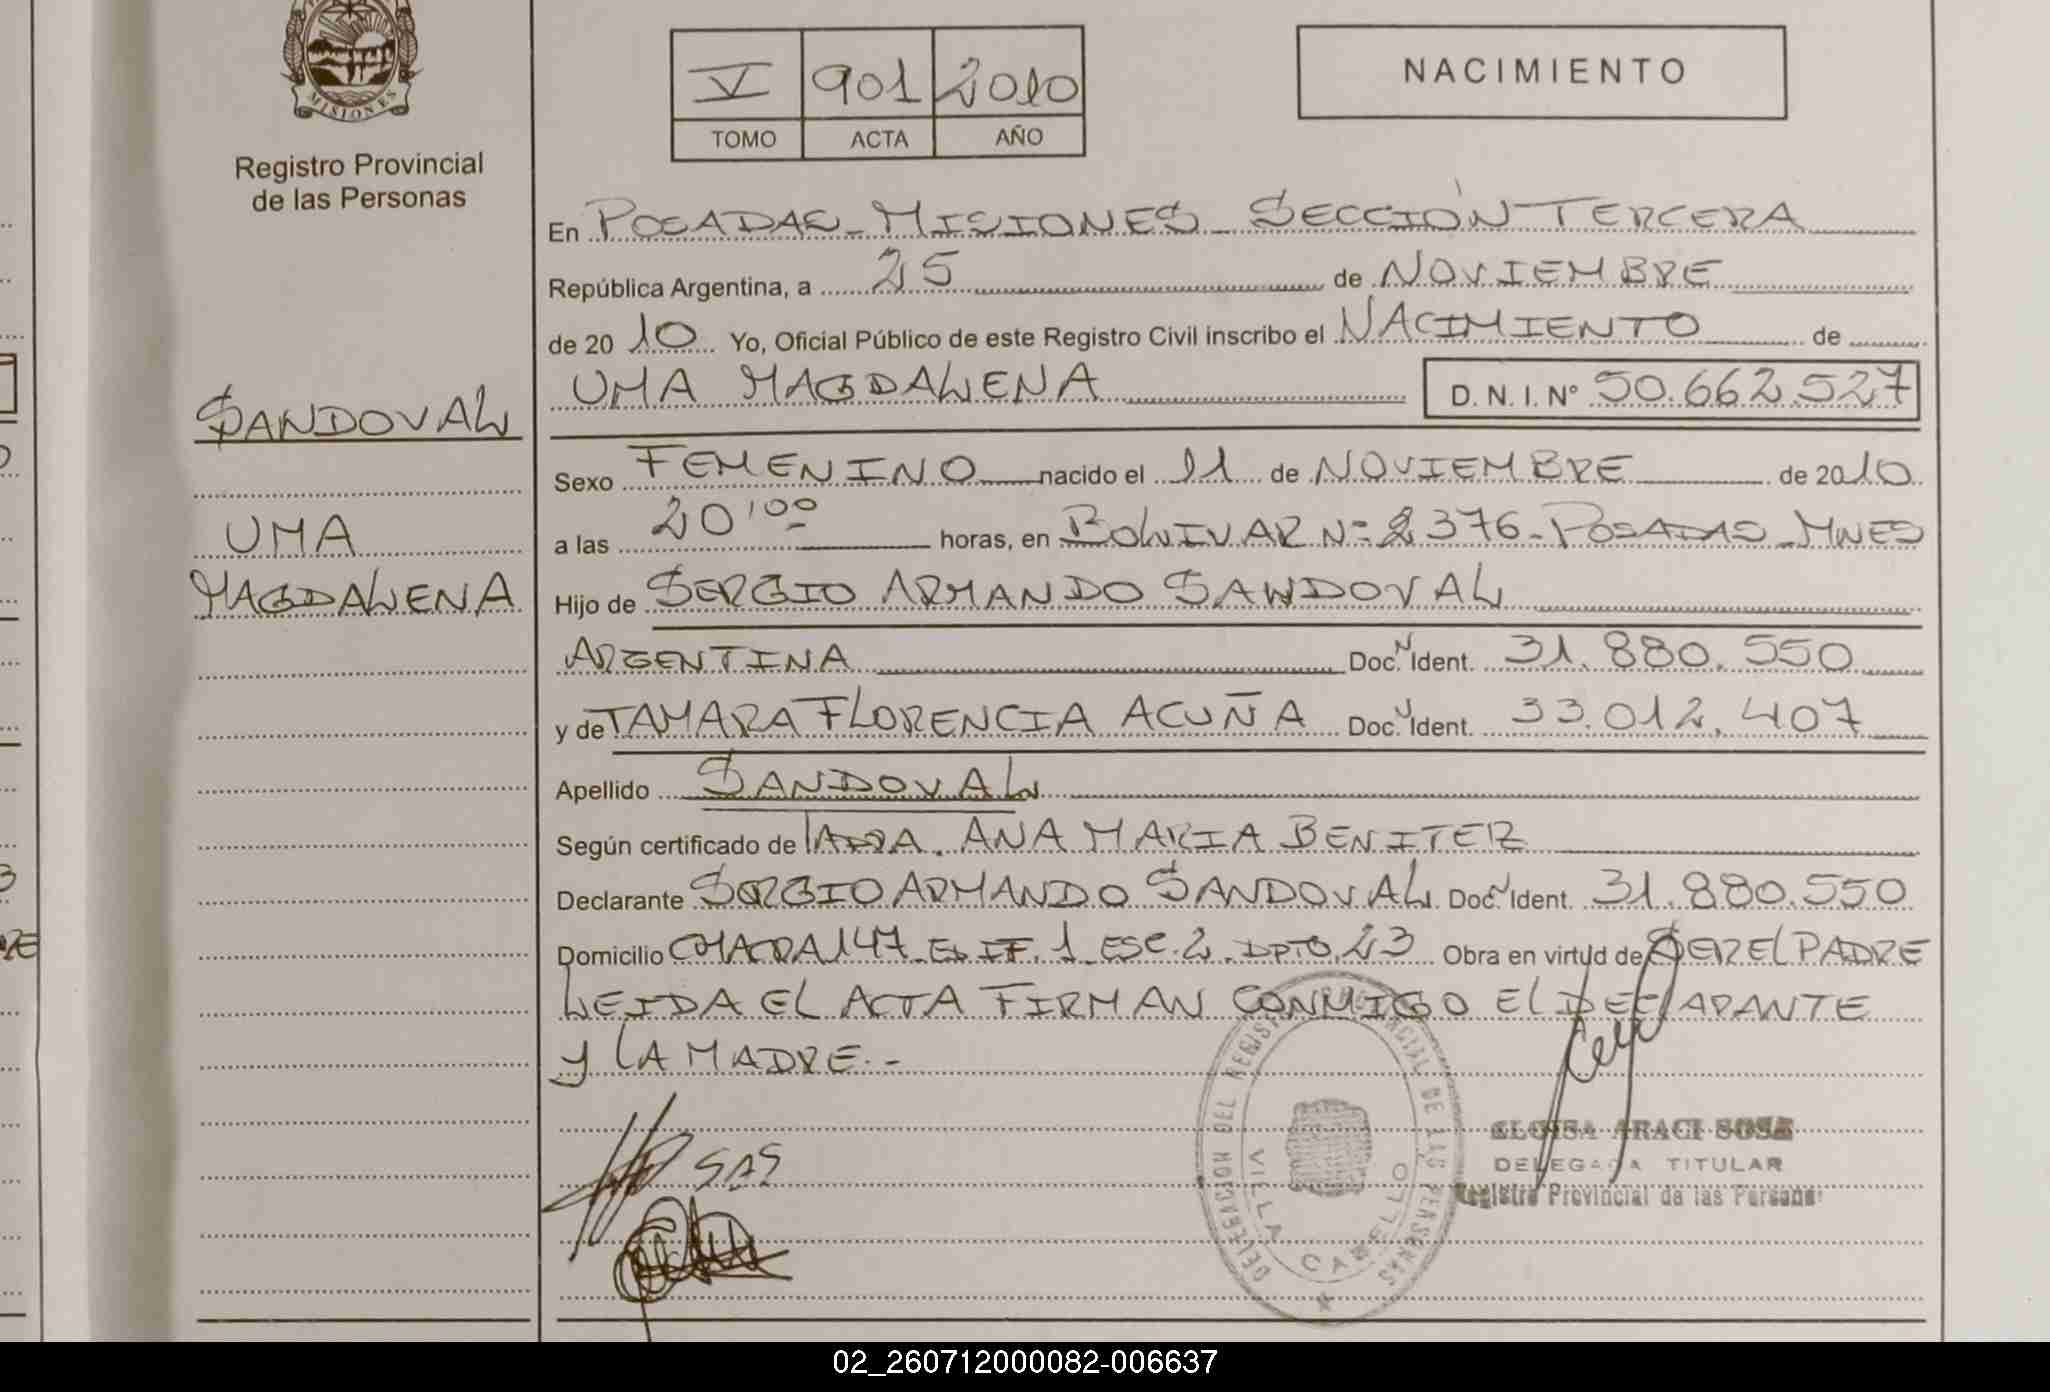 MISIONES
Registro Provincial
de las Personas
SANDOVAL
UMA
MAGDALENA
V 901 2010
TOMO ACTA AÑO
NACIMIENTO
En POSADAS - MISIONES - SECCIÓN TERCERA
República Argentina, a 25 de NOVIEMBRE
de 2010 Yo, Oficial Público de este Registro Civil inscribo el NACIMIENTO de
UMA MAGDALENA D. N. I. Nº 50.662.527
Sexo FEMENINO nacido el 11 de NOVIEMBRE de 2010
a las 20'00 horas, en BOLIVAR Nº 2376 - POSADAS - MNES
Hijo de SERGIO ARMANDO SANDOVAL
ARGENTINA Doc. N Ident. 31.880.550
y de TAMARA FLORENCIA ACUÑA Doc. N Ident. 33.012.407
Apellido SANDOVAL
Según certificado de LA DRA. ANA MARIA BENITEZ
Declarante SERGIO ARMANDO SANDOVAL Doc. N Ident. 31.880.550
Domicilio CHACRA 147 - EDIF. 1 - ESC. 2 - DPTO. 23 Obra en virtud de SER EL PADRE
LEIDA EL ACTA FIRMAN CONMIGO EL DECLARANTE
Y LA MADRE.-
SAS
DELEGACION DEL REGISTRO PROVINCIAL DE LAS PERSONAS
VILLA CABELLO
ELOISA ARACI SOSA
DELEGADA TITULAR
Registro Provincial de las Personas
02_260712000082-006637